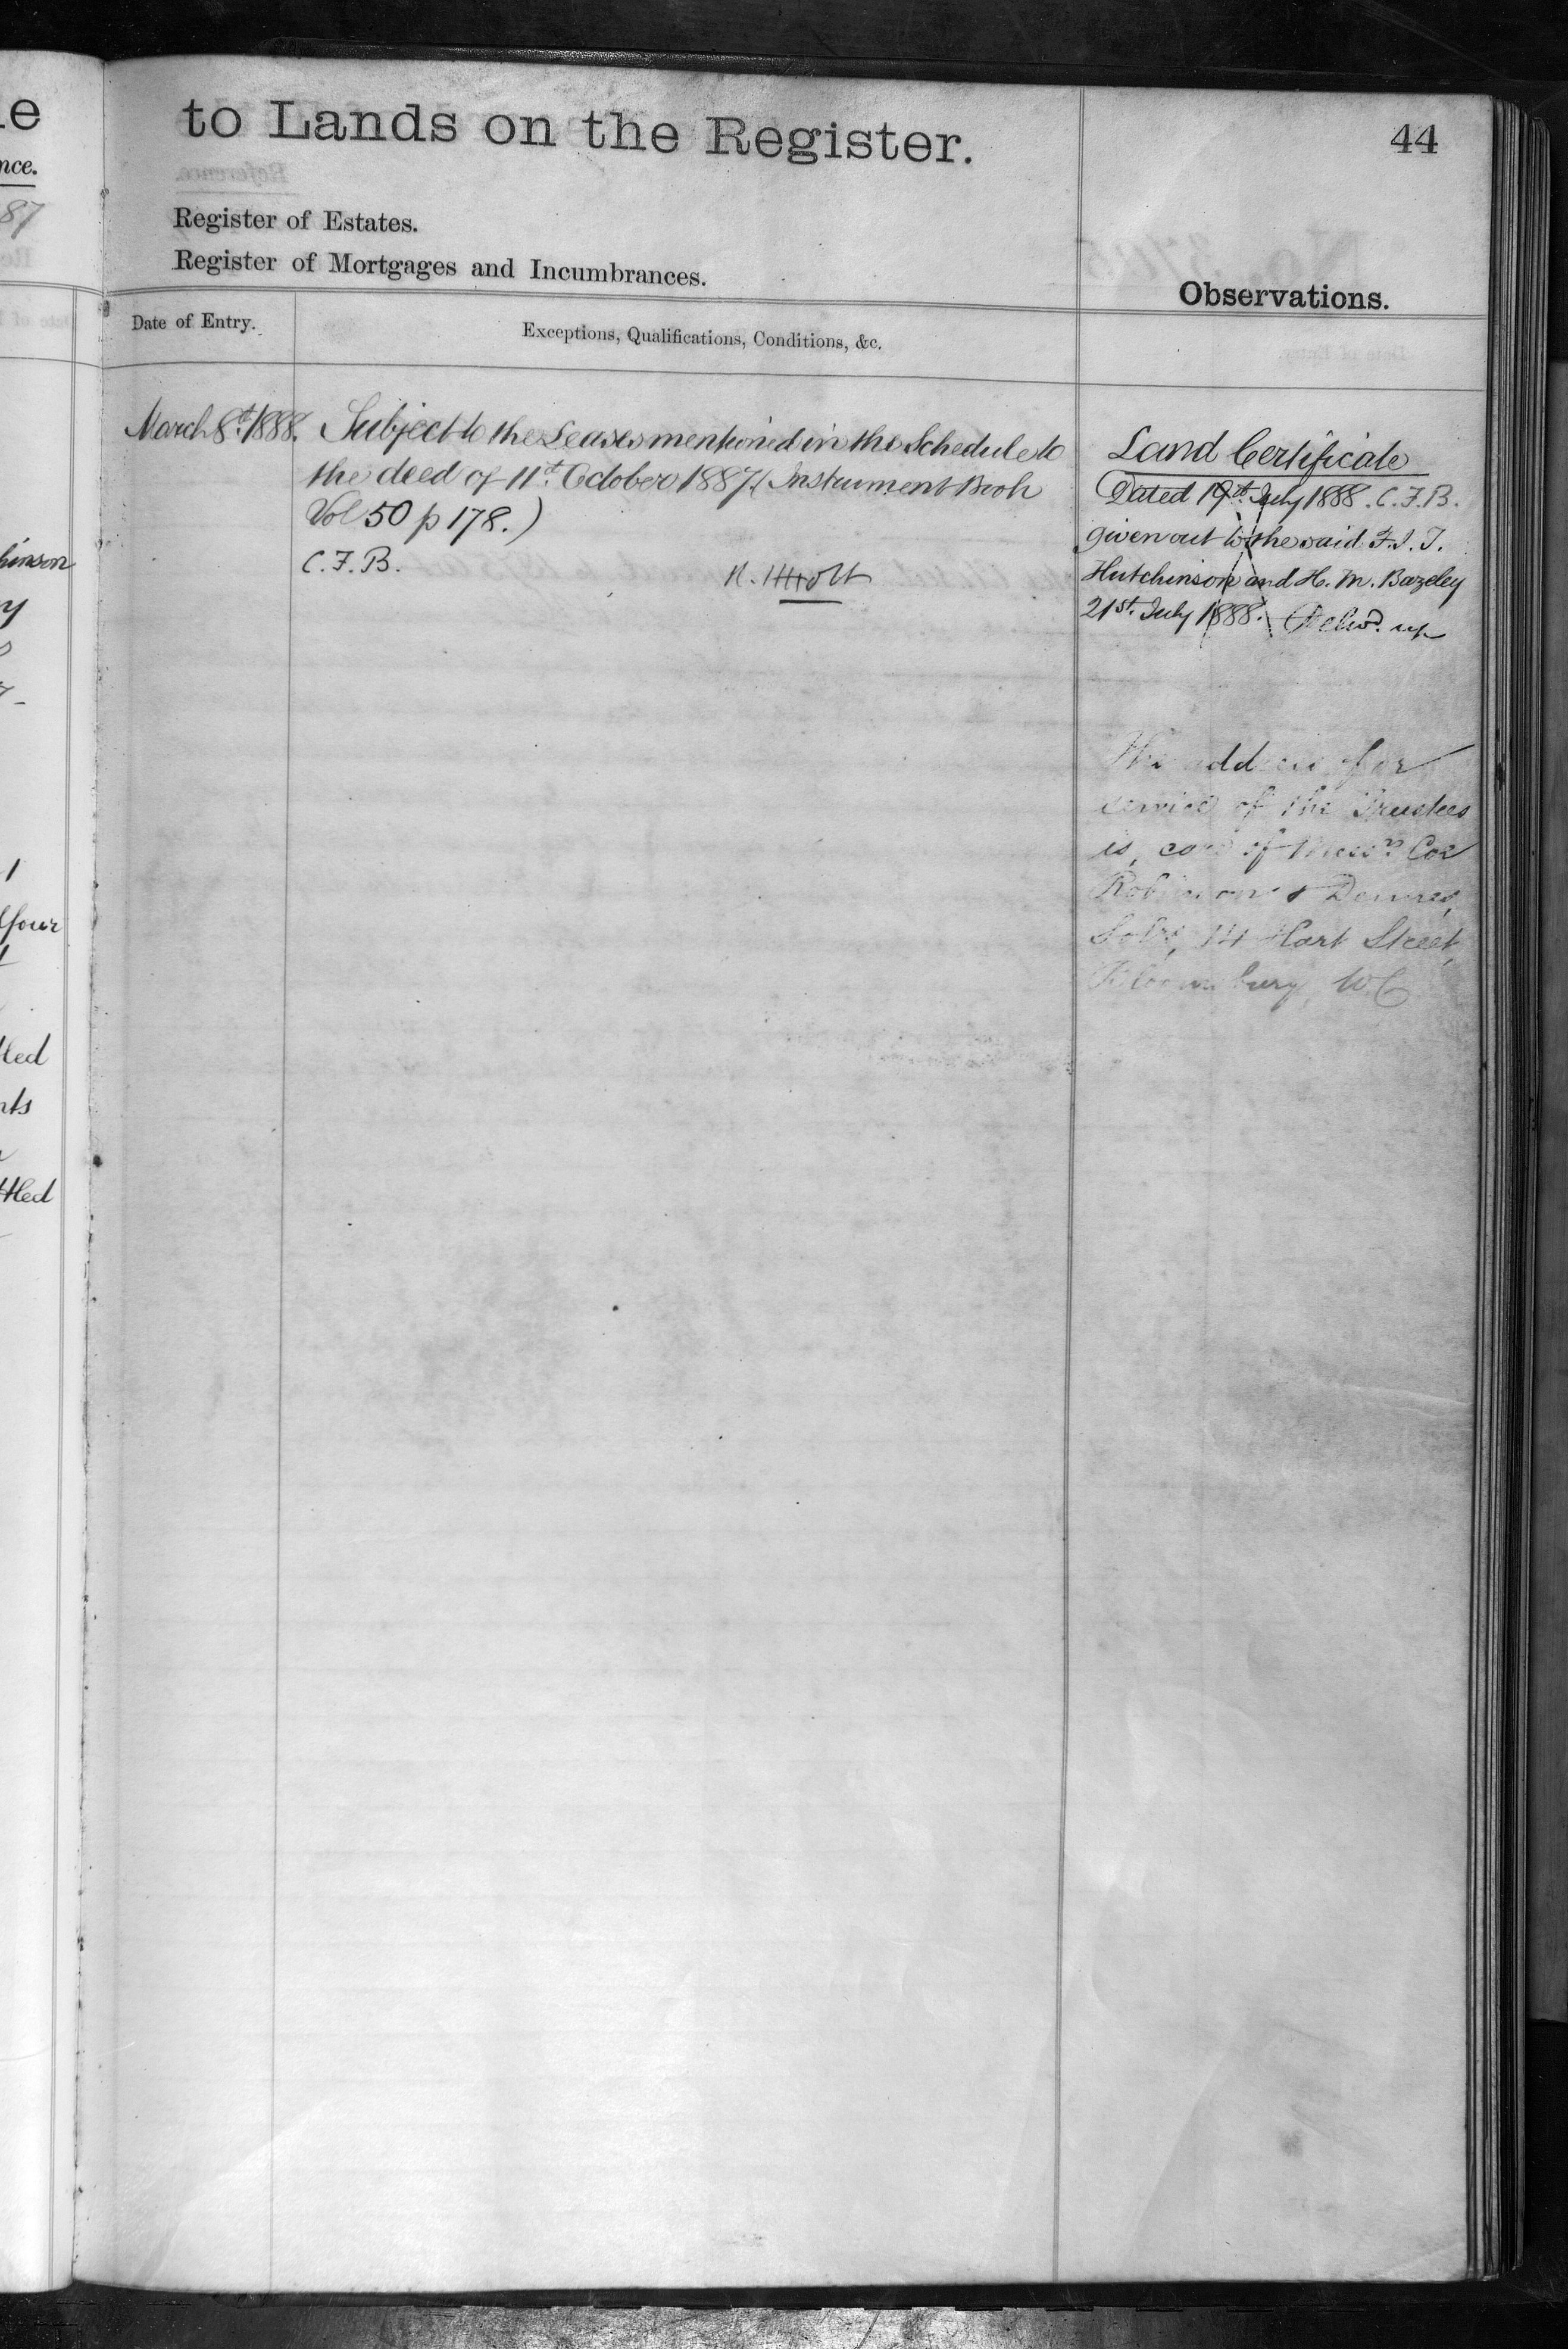 to Lands on the Register.
44
Register of Estates.
Register of Mortgages and Incumbrances.
Observations.
Date of Entry.
Exceptions, Qualifications, Conditions, &c.
March 8th 1888.
Subject to the Leases mentioned in the Schedule to
the deed of 11th October 1887 (Instrument Book
Vol 50 p 178.)
C.F.B.
R. Holt
Land Certificate
Dated 19th July 1888. C.F.B.
given out to the said F.I.T.
Hutchinson and H. M. Bazeley
21st. July 1888. Delivd. up
The address for
service of the Trustees
is, care of Messrs Cox
Robinson & Dennes,
Solrs, 14 Hart Street,
Bloomsbury, W.C
nce.
87
hinson
four
tled
nts
ttled